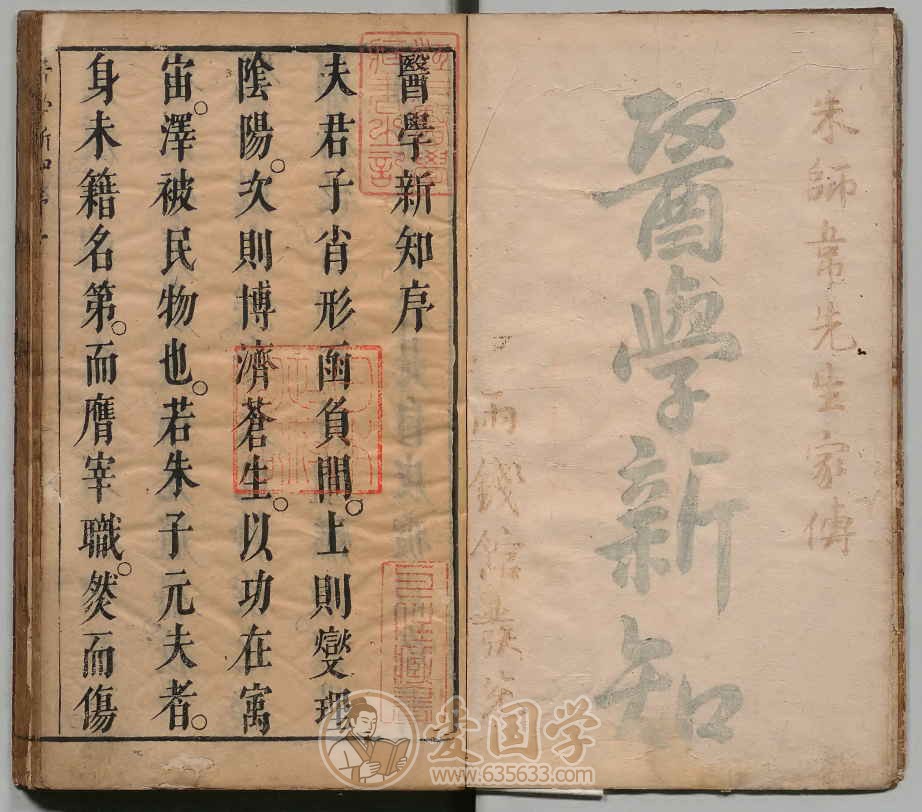 朱師韋先生家傳
醫學新知
醫學新知序
夫君子肖形函負間。上則燮理
陰陽。次則博濟蒼生。以功在寓
宙。澤被民物也。若朱子元夫者。
身未籍名第。而膺宰職。然而傷
爱国学
www.635633.com